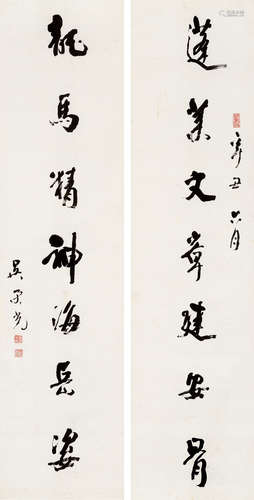 辛丑六月
蓬莱文章建安骨
龍馬精神海岳姿
吳榮光